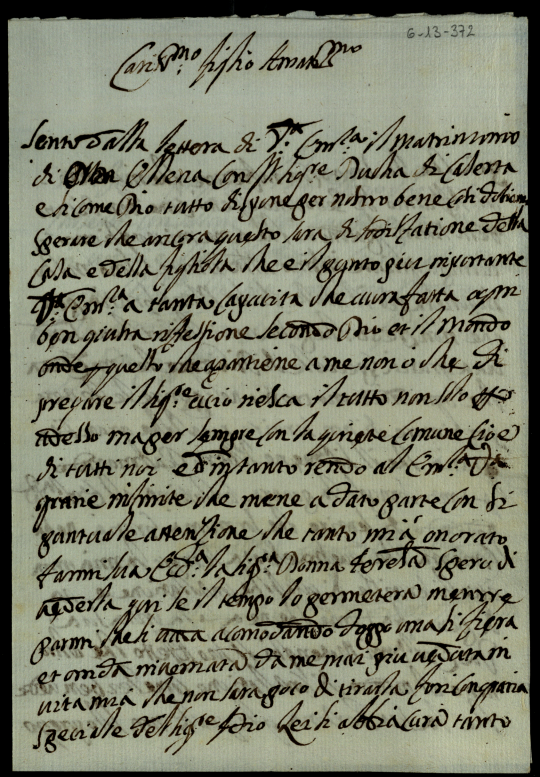 6-13-372
Caris.mo figlio Amatis.mo
Sento dalla lettera di V.ra Em.za il Matrimonio
di Ellena Con il Sig.re Ducha di Caserta
e sicome Dio tutto dispone per nostro bene cosi dobiamo
sperare che ancora questo sara di sodisfatione della
Casa e della figliola che e il punto piu inportante
V.ra Em.za a tanta capacita che avra fatta ogni
ben giusta riflessione secondo Dio et il Mondo
onde questo che apartiene a me non o che di
pregare il Sig.re accio riesca il tutto non solo
adesso ma per sempre con la quiete comune cioe
di tutti noi ed intanto rendo al Em.za V.ra
gratie infinite che mene a dato parte con si
puntuale attenzione che tanto mi a onorato
farmi sua Ecc.a la Sig.ra Donna Teresa spero di
vederla qui se il tempo lo permetera mentre
parmi che si vada acomodando doppo una si fiera
et orrida invernata da me mai piu veduta in
vita mia che non sara poco di tirarla fori con grazia
speciale del Sig.re Idio Lei si abbia cura tanto